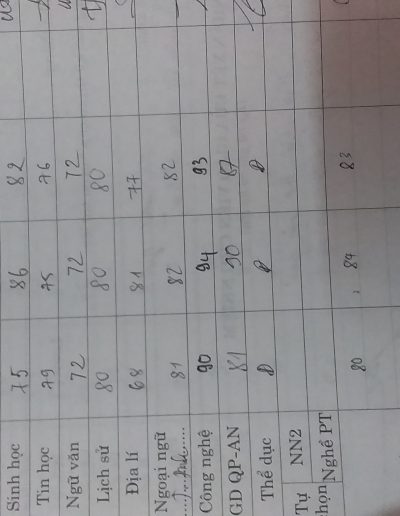 Sinh học 75 86 82
Tin học 79 75 76
Ngữ văn 72 72 72
Lịch sử 80 80 80
Địa lí 68 81 77
Ngoại ngữ 81 82 82
...T.Anh.....
Công nghệ 90 94 93
GD QP-AN 81 90 87
Thể dục Đ Đ Đ
Tự NN2
họn Nghề PT 80 84 83